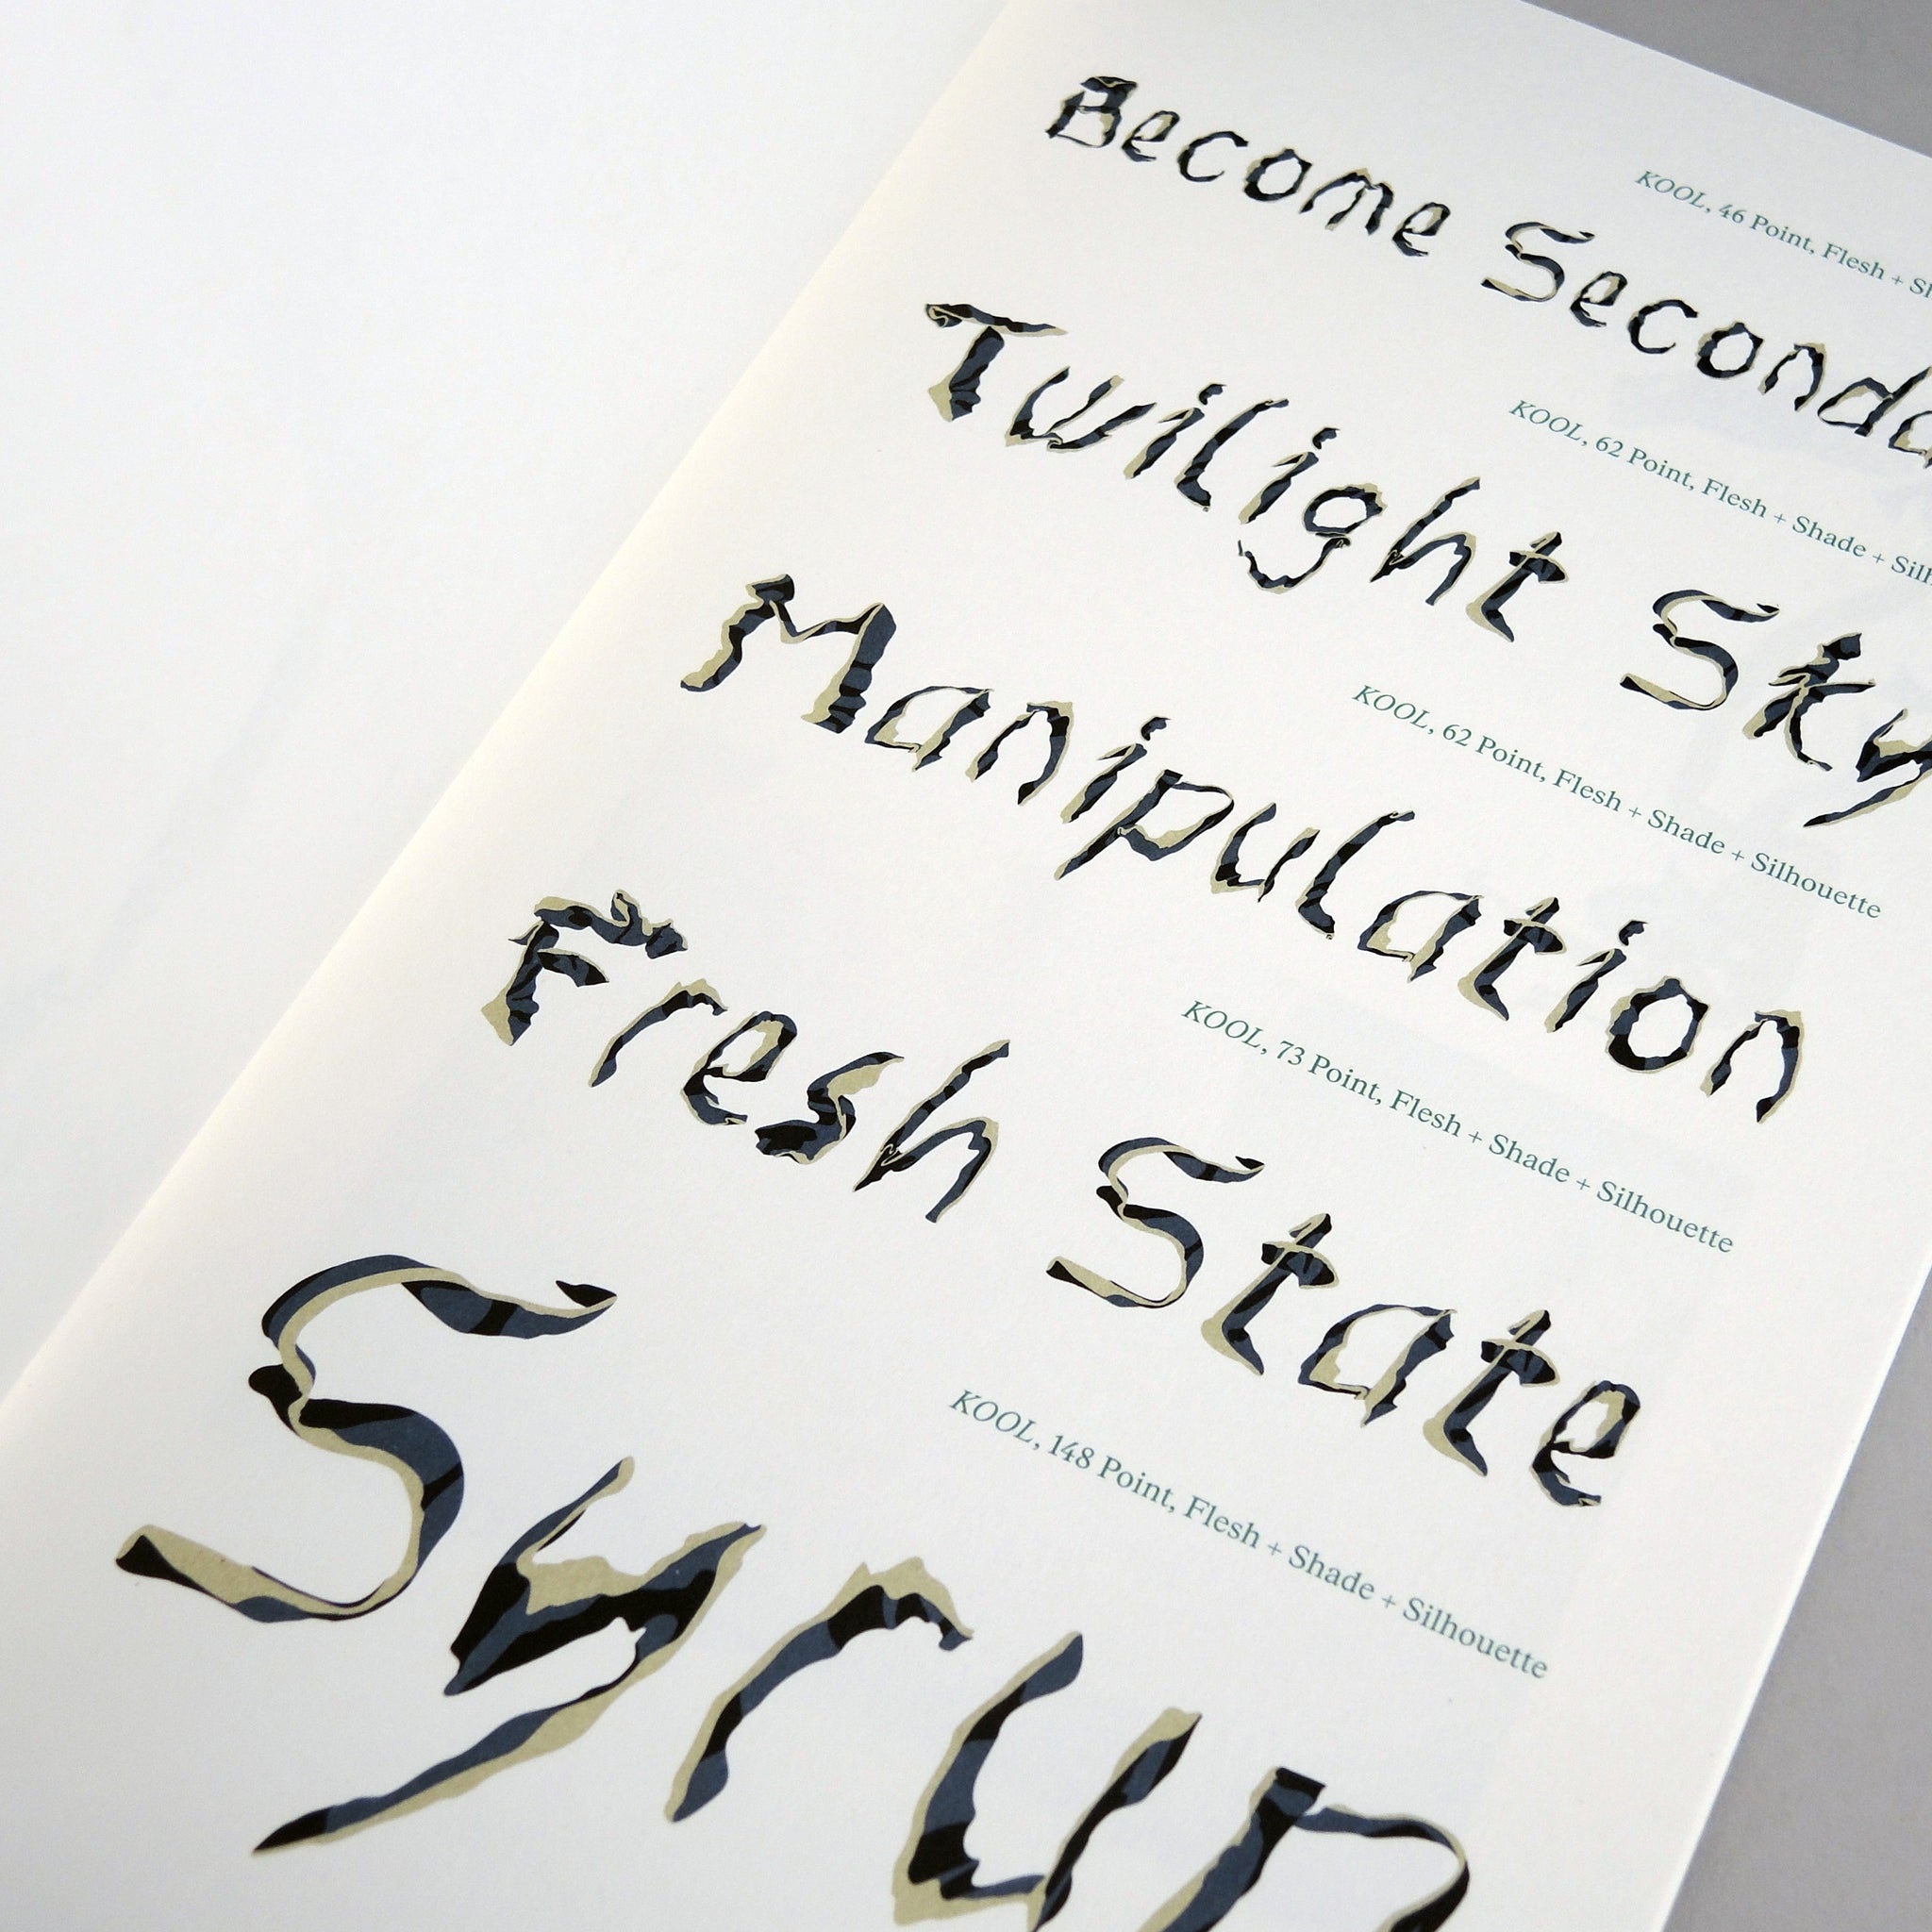 KOOL, 46 Point, Flesh +
Become
KOOL, 62 Point, Flesh + Shade +
Twilight Sky
KOOL, 62 Point, Flesh + Shade + Silhouette
Manipulation
KOOL, 73 Point, Flesh + Shade + Silhouette
Fresh State
KOOL, 148 Point, Flesh + Shade + Silhouette
Syrup